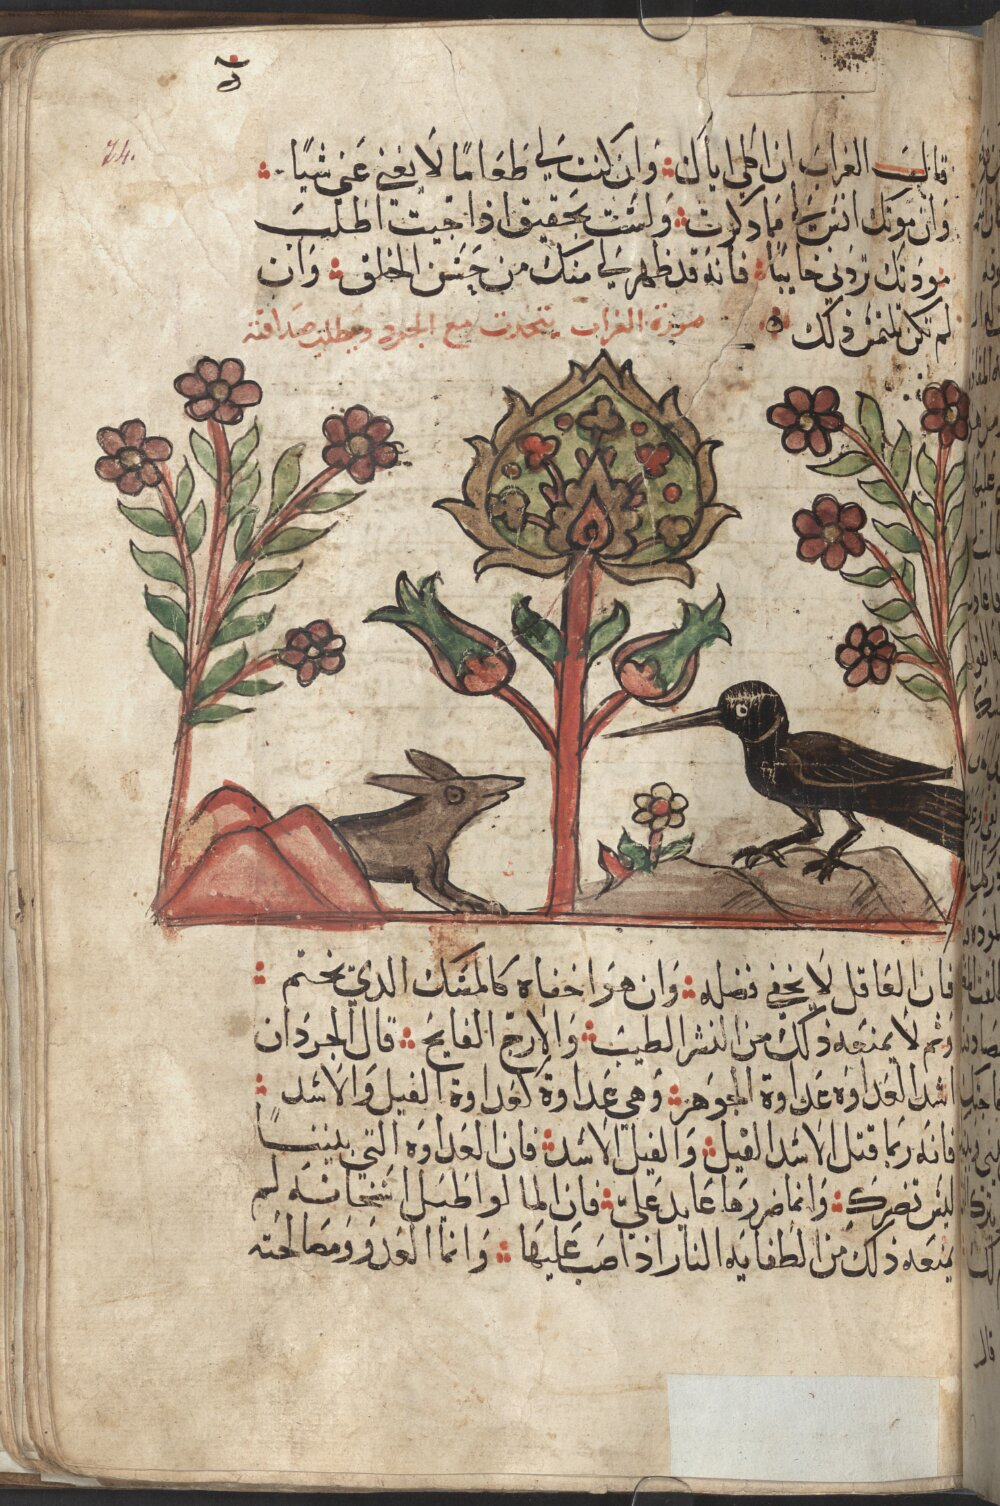 قالت الغراب ان اكلي اياك وان كنت لي طعاما لا يغني عني شيا
وان مودتك انس لي مما ذكرت ولست بحقيق اذا جيت اطلب
مودتك تردني خايبا فانه قد ظهر لي منك من حسن الخلق وان
لم تكن تلتمس ذلك
صورة الغراب يتحدث مع الجرد ويطلب صداقته
فان العاقل لا يخفي فضله وان هو اخفاه كالمسك الدي يختم
وثم لا يمنعه ذلك من النشر الطيب والارج الفايح قال الجرد ان
اشد العداوه عداوة الجوهر وهي عداوة كعداوة الفيل والاسد
فانه ربما قتل الاسد الفيل والفيل الاسد فان العداوه التي بيننا
ليس تضرك وانما ضررها عايد علي فان الما لو اطيل اسخانه لم
يمنعه ذلك من اطفايه النار اذا صب عليها وانما العدو ومصالحته
74.